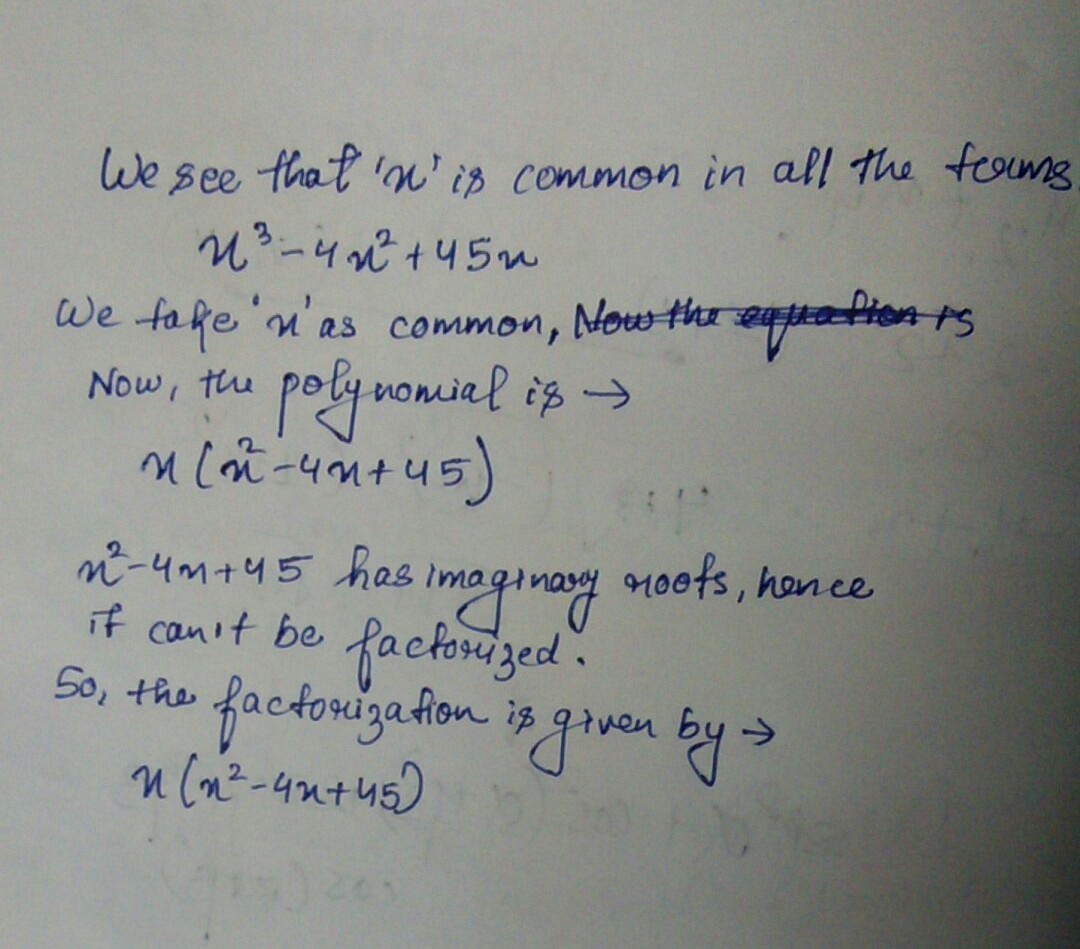 We see that 'x' is common in all the terms.
x³-4x²+45x
We take 'x' as common, Now the equation is
Now, the polynomial is →
x(x²-4x+45)
x²-4x+45 has imaginary roots, hence
it can't be factorized.
So, the factorization is given by →
x(x²-4x+45)